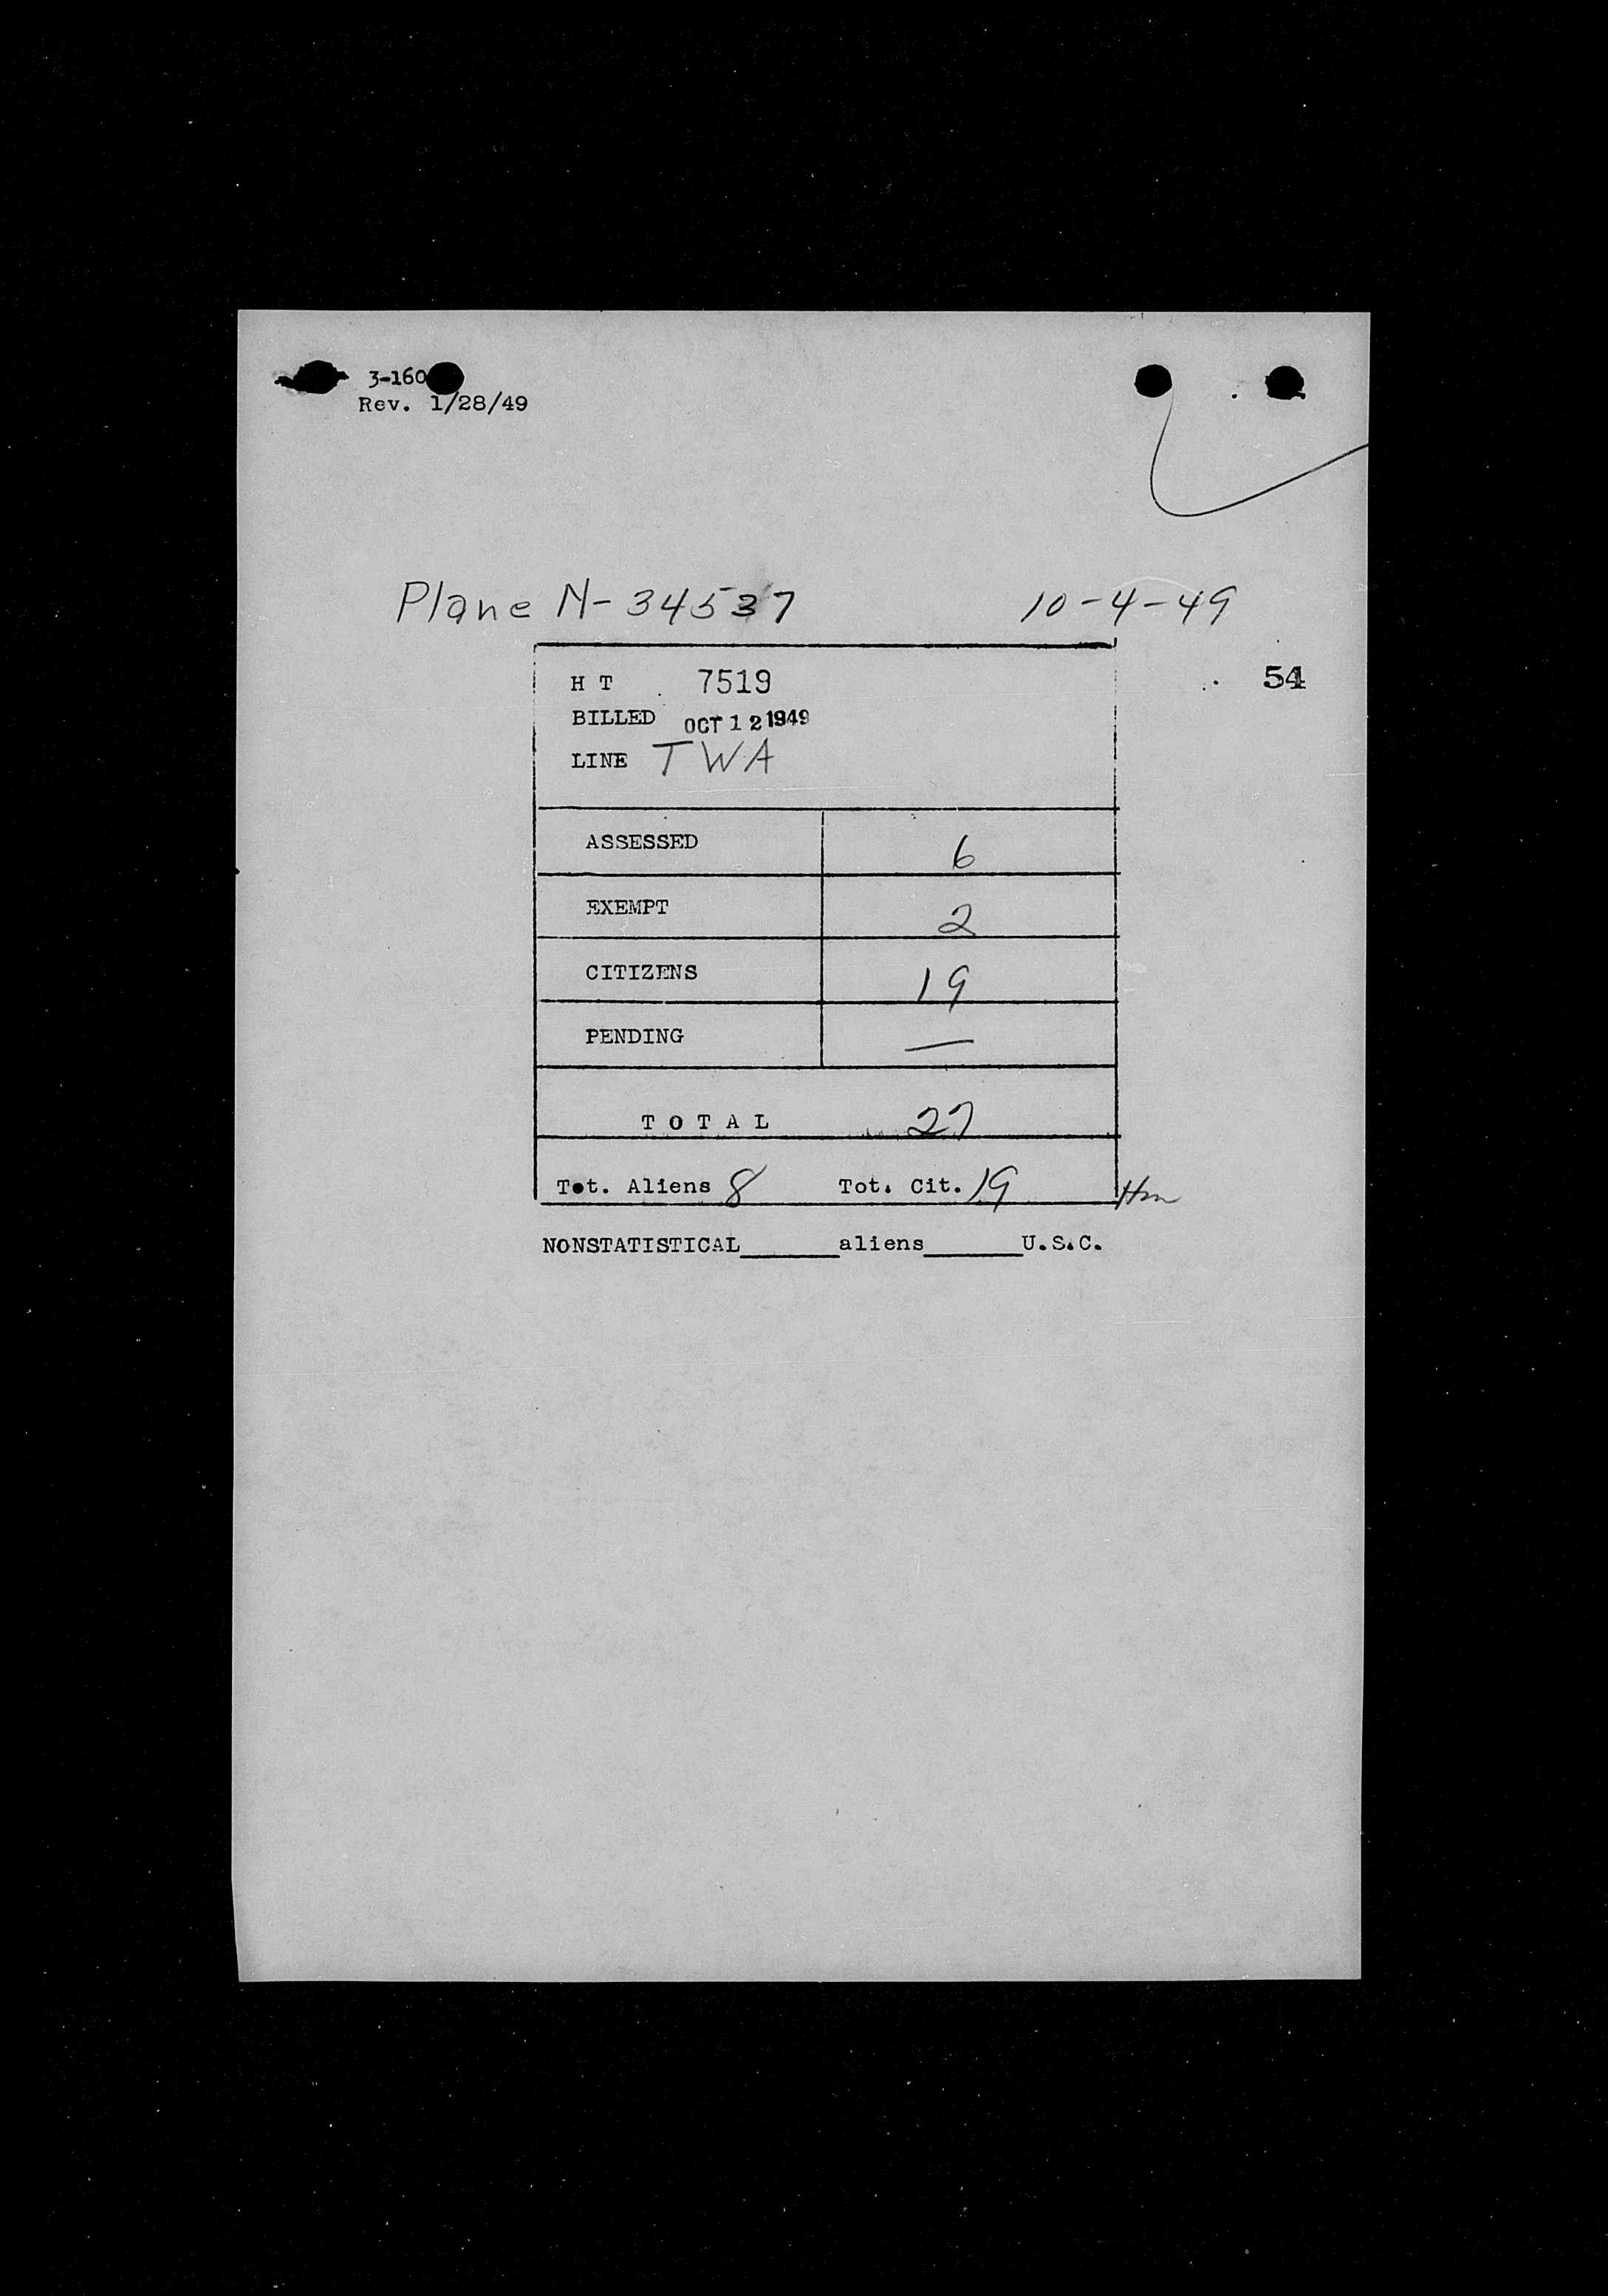 3-160
Rev. 1/28/49
Plane N-34537 10-4-49
54
H T 7519
BILLED OCT 12 1949
LINE TWA
ASSESSED 6
EXEMPT 2
CITIZENS 19
PENDING —
T O T A L 27
Tot. Aliens 8 Tot. Cit. 19
NONSTATISTICAL______aliens______U.S.C.